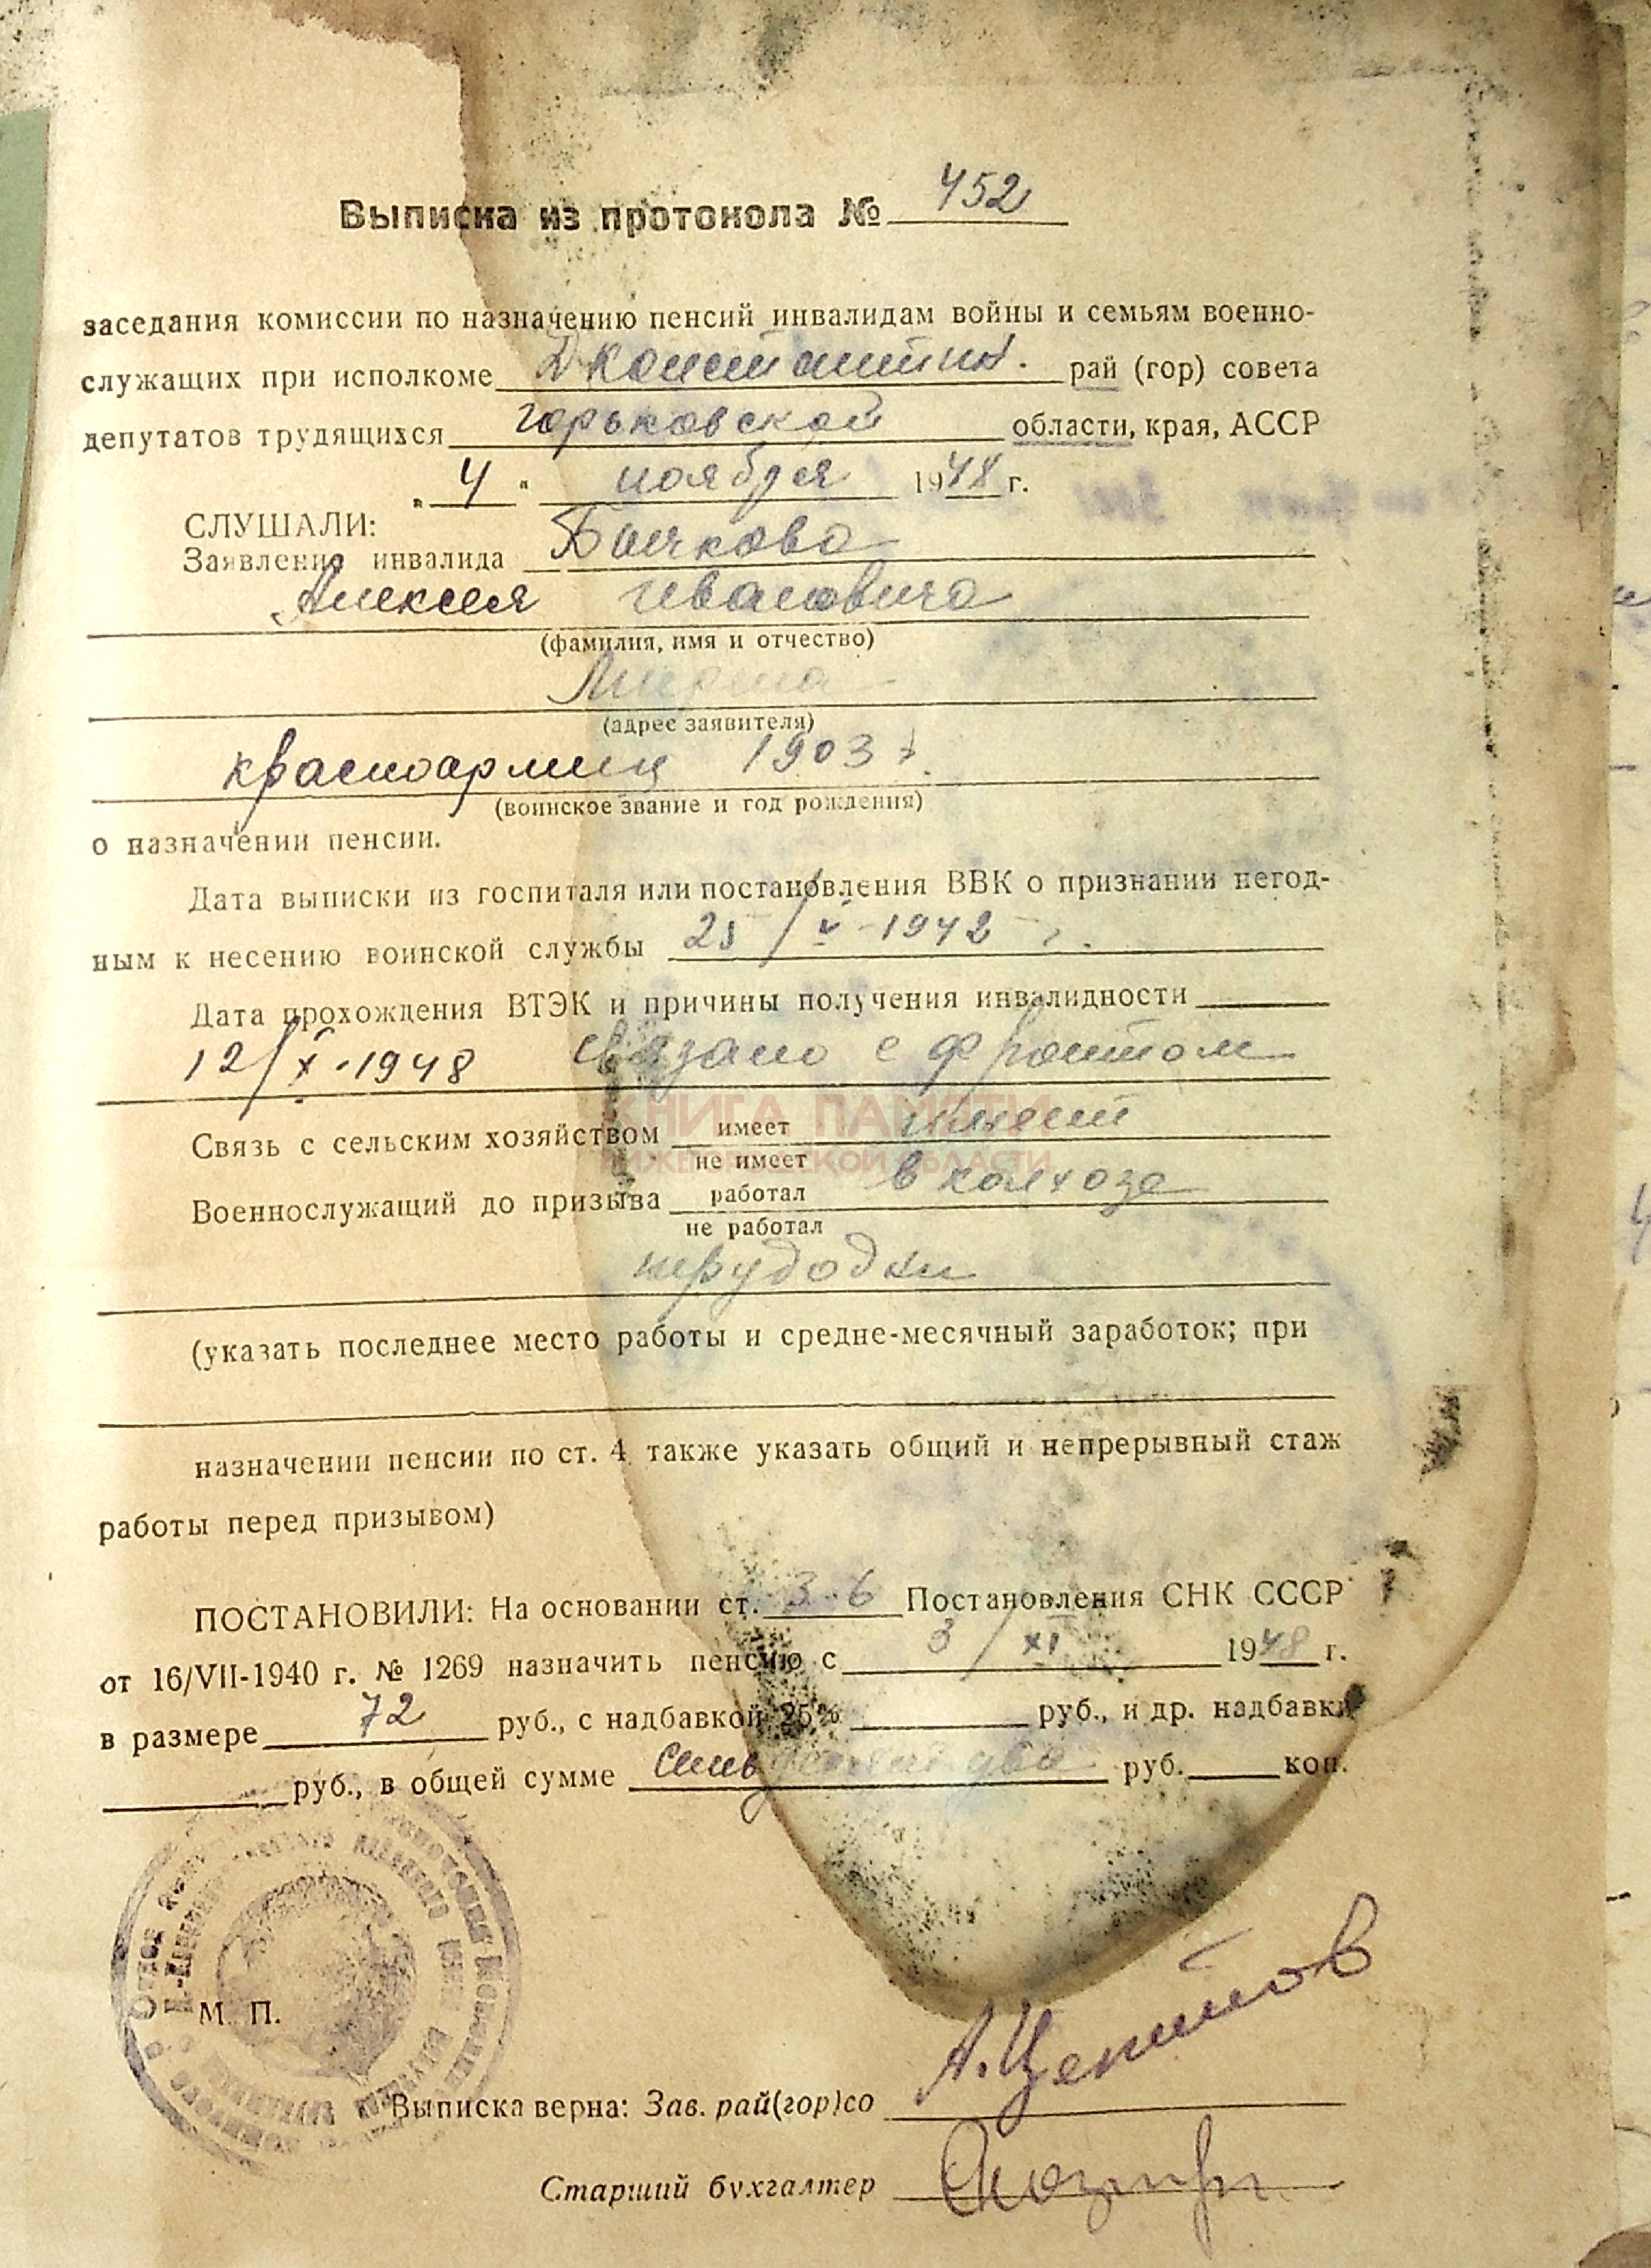 Выписка из протокола № 452
заседания комиссии по назначению пенсий инвалидам войны и семьям военно-
служащих при исполкоме Дконстантин. рай (гор) совета
депутатов трудящихся горьковской области, края, АССР
„ 4 " ноября 1948 г.
СЛУШАЛИ:
Заявление инвалида
Алексея Ивановича
(фамилия, имя и отчество)
(адрес заявителя)
красноармеец 1903 г.
(воинское звание и год рождения)
о назначении пенсии.
Дата выписки из госпиталя или постановления ВВК о признании негод-
ным к несению воинской службы 25/V-1942 г.
Дата прохождения ВТЭК и причины получения инвалидности
12/X-1948 связано с фронтом
КНИГА ПАМЯТИ
НИЖЕГОРОДСКОЙ ОБЛАСТИ
Связь с сельским хозяйством имеет имеет
не имеет
Военнослужащий до призыва работал в колхозе
не работал
(указать последнее место работы и средне-месячный заработок; при
назначении пенсии по ст. 4 также указать общий и непрерывный стаж
работы перед призывом)
ПОСТАНОВИЛИ: На основании ст. 3-6 Постановления СНК СССР
от 16/VII-1940 г. № 1269 назначить пенсию с 3/XI 1948 г.
в размере 72 руб., с надбавкой 25% руб., и др. надбавки
руб., в общей сумме семьдесят два руб. коп.
М. П.
Выписка верна: Зав. рай(гор)со
Старший бухгалтер